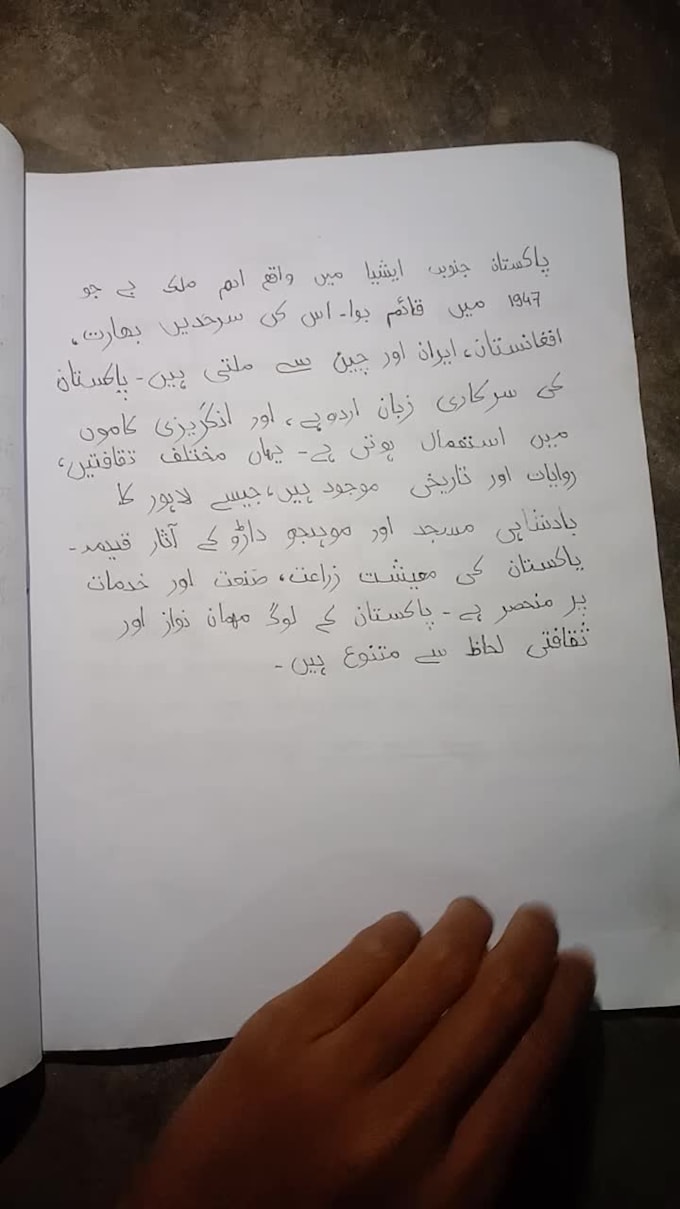 پاکستان جنوب ایشیا میں واقع اہم ملک ہے جو
1947 میں قائم ہوا۔ اس کی سرحدیں بھارت،
افغانستان، ایران اور چین سے ملتی ہیں۔ پاکستان
کی سرکاری زبان اردو ہے، اور انگریزی کاموں
میں استعمال ہوتی ہے۔ یہاں مختلف ثقافتیں،
روایات اور تاریخی موجود ہیں، جیسے لاہور کا
بادشاہی مسجد اور موہنجو داڑو کے آثار قیمہ۔
پاکستان کی معیشت زراعت، صنعت اور خدمات
پر منحصر ہے۔ پاکستان کے لوگ مہمان نواز اور
ثقافتی لحاظ سے متنوع ہیں۔